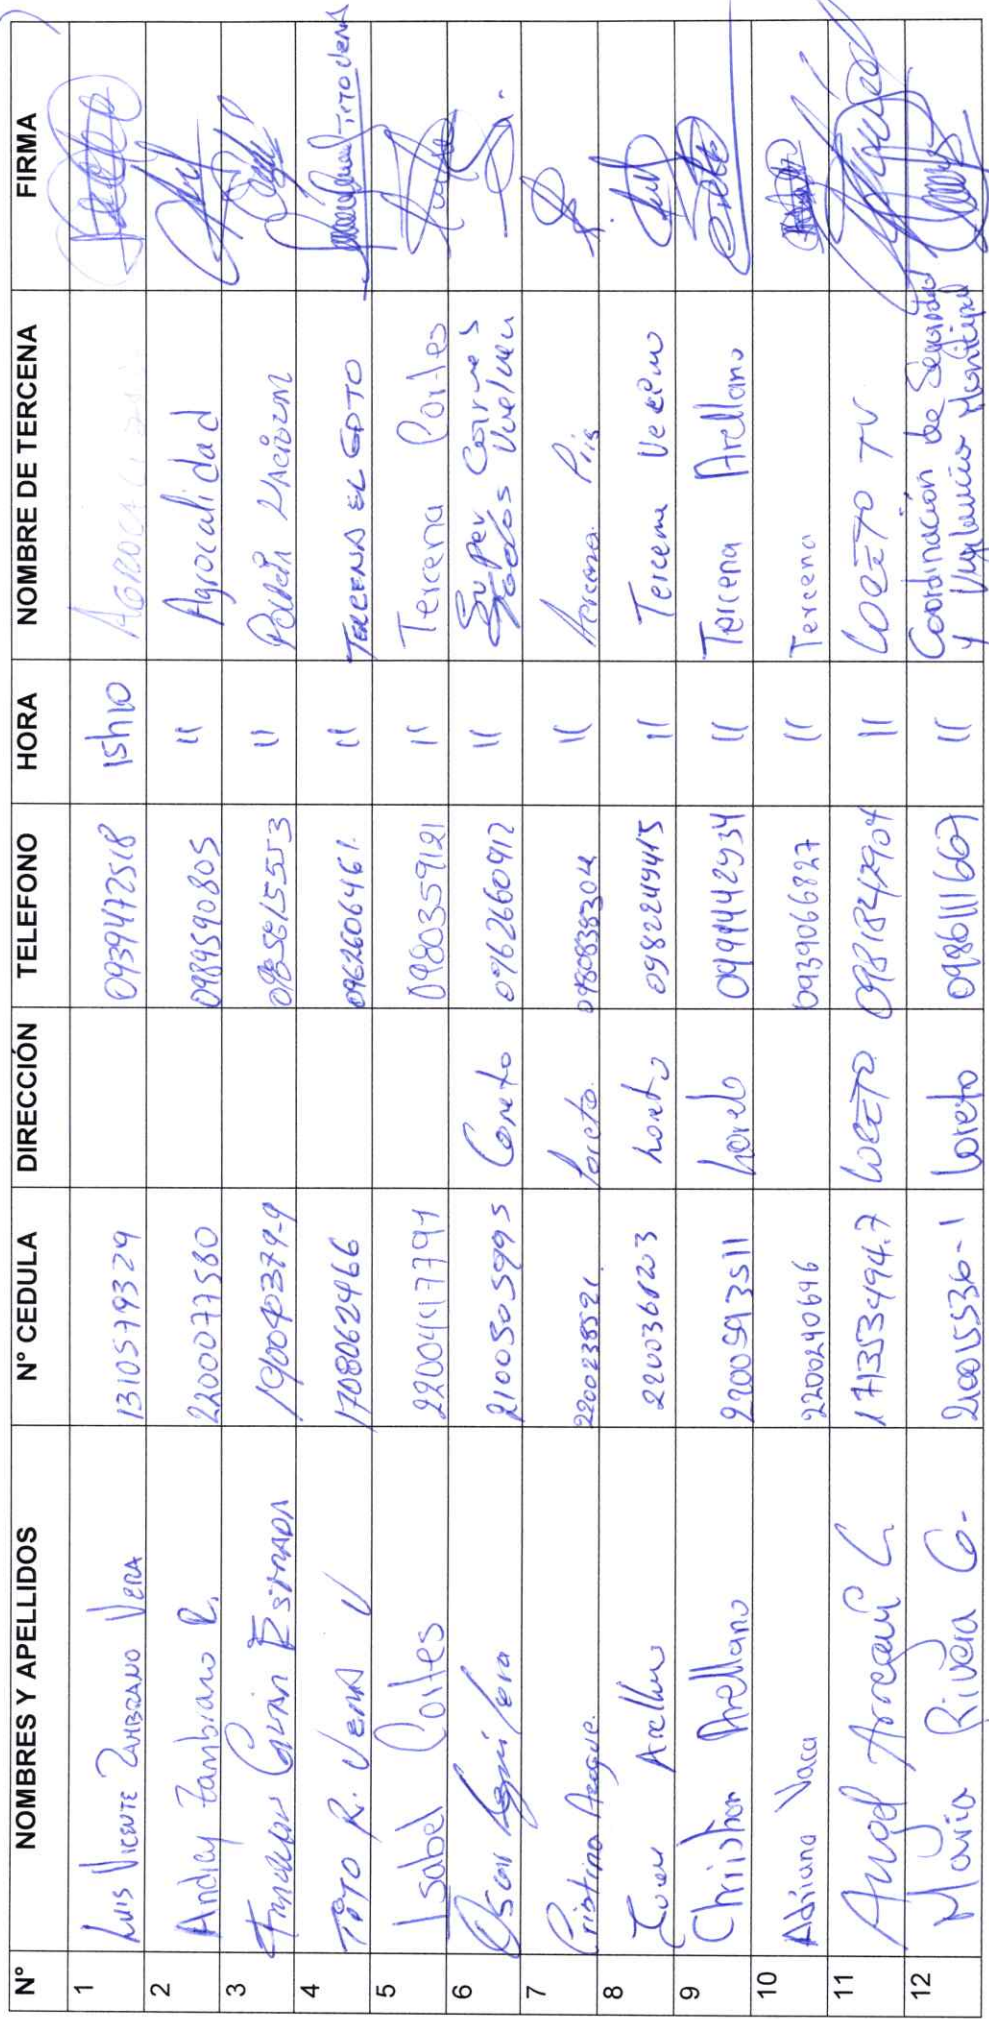 N° NOMBRES Y APELLIDOS N° CEDULA DIRECCIÓN TELEFONO HORA NOMBRE DE TERCENA FIRMA
1 Luis Vicente Zambrano Vera 1310579329 0939472518 15h10 Agrocalidad
2 Andrey Zambrano R. 2200077580 0989590805 " Agrocalidad
3 Estrada "
4 Tito R. Vera V 1708062466 0962606461. " TERCENA EL GDTO Tito Vera
5 Isabel Cortes 2200417791 0980359121 " Tercena Cortes
6 2100505995 Loreto 0962660912 " Super Carnes
7 Cristina 2200238521 Loreto. 0980838304 "
8 Arellano 2200361203 Loreto 0982249415 " Tercena
9 Christian Arellano 2200593511 Loreto 0991442934 " Tercena Arellano
10 Adriana Vaca 2200240646 0939066827 " Tercena
11 Angel 171353494.7 LORETO 0981842904 " LORETO TV
12 Maria Rivera G. 210015536-1 Loreto 0986111667 " Coordinación de Seguridad
y Vigilancia Municipal